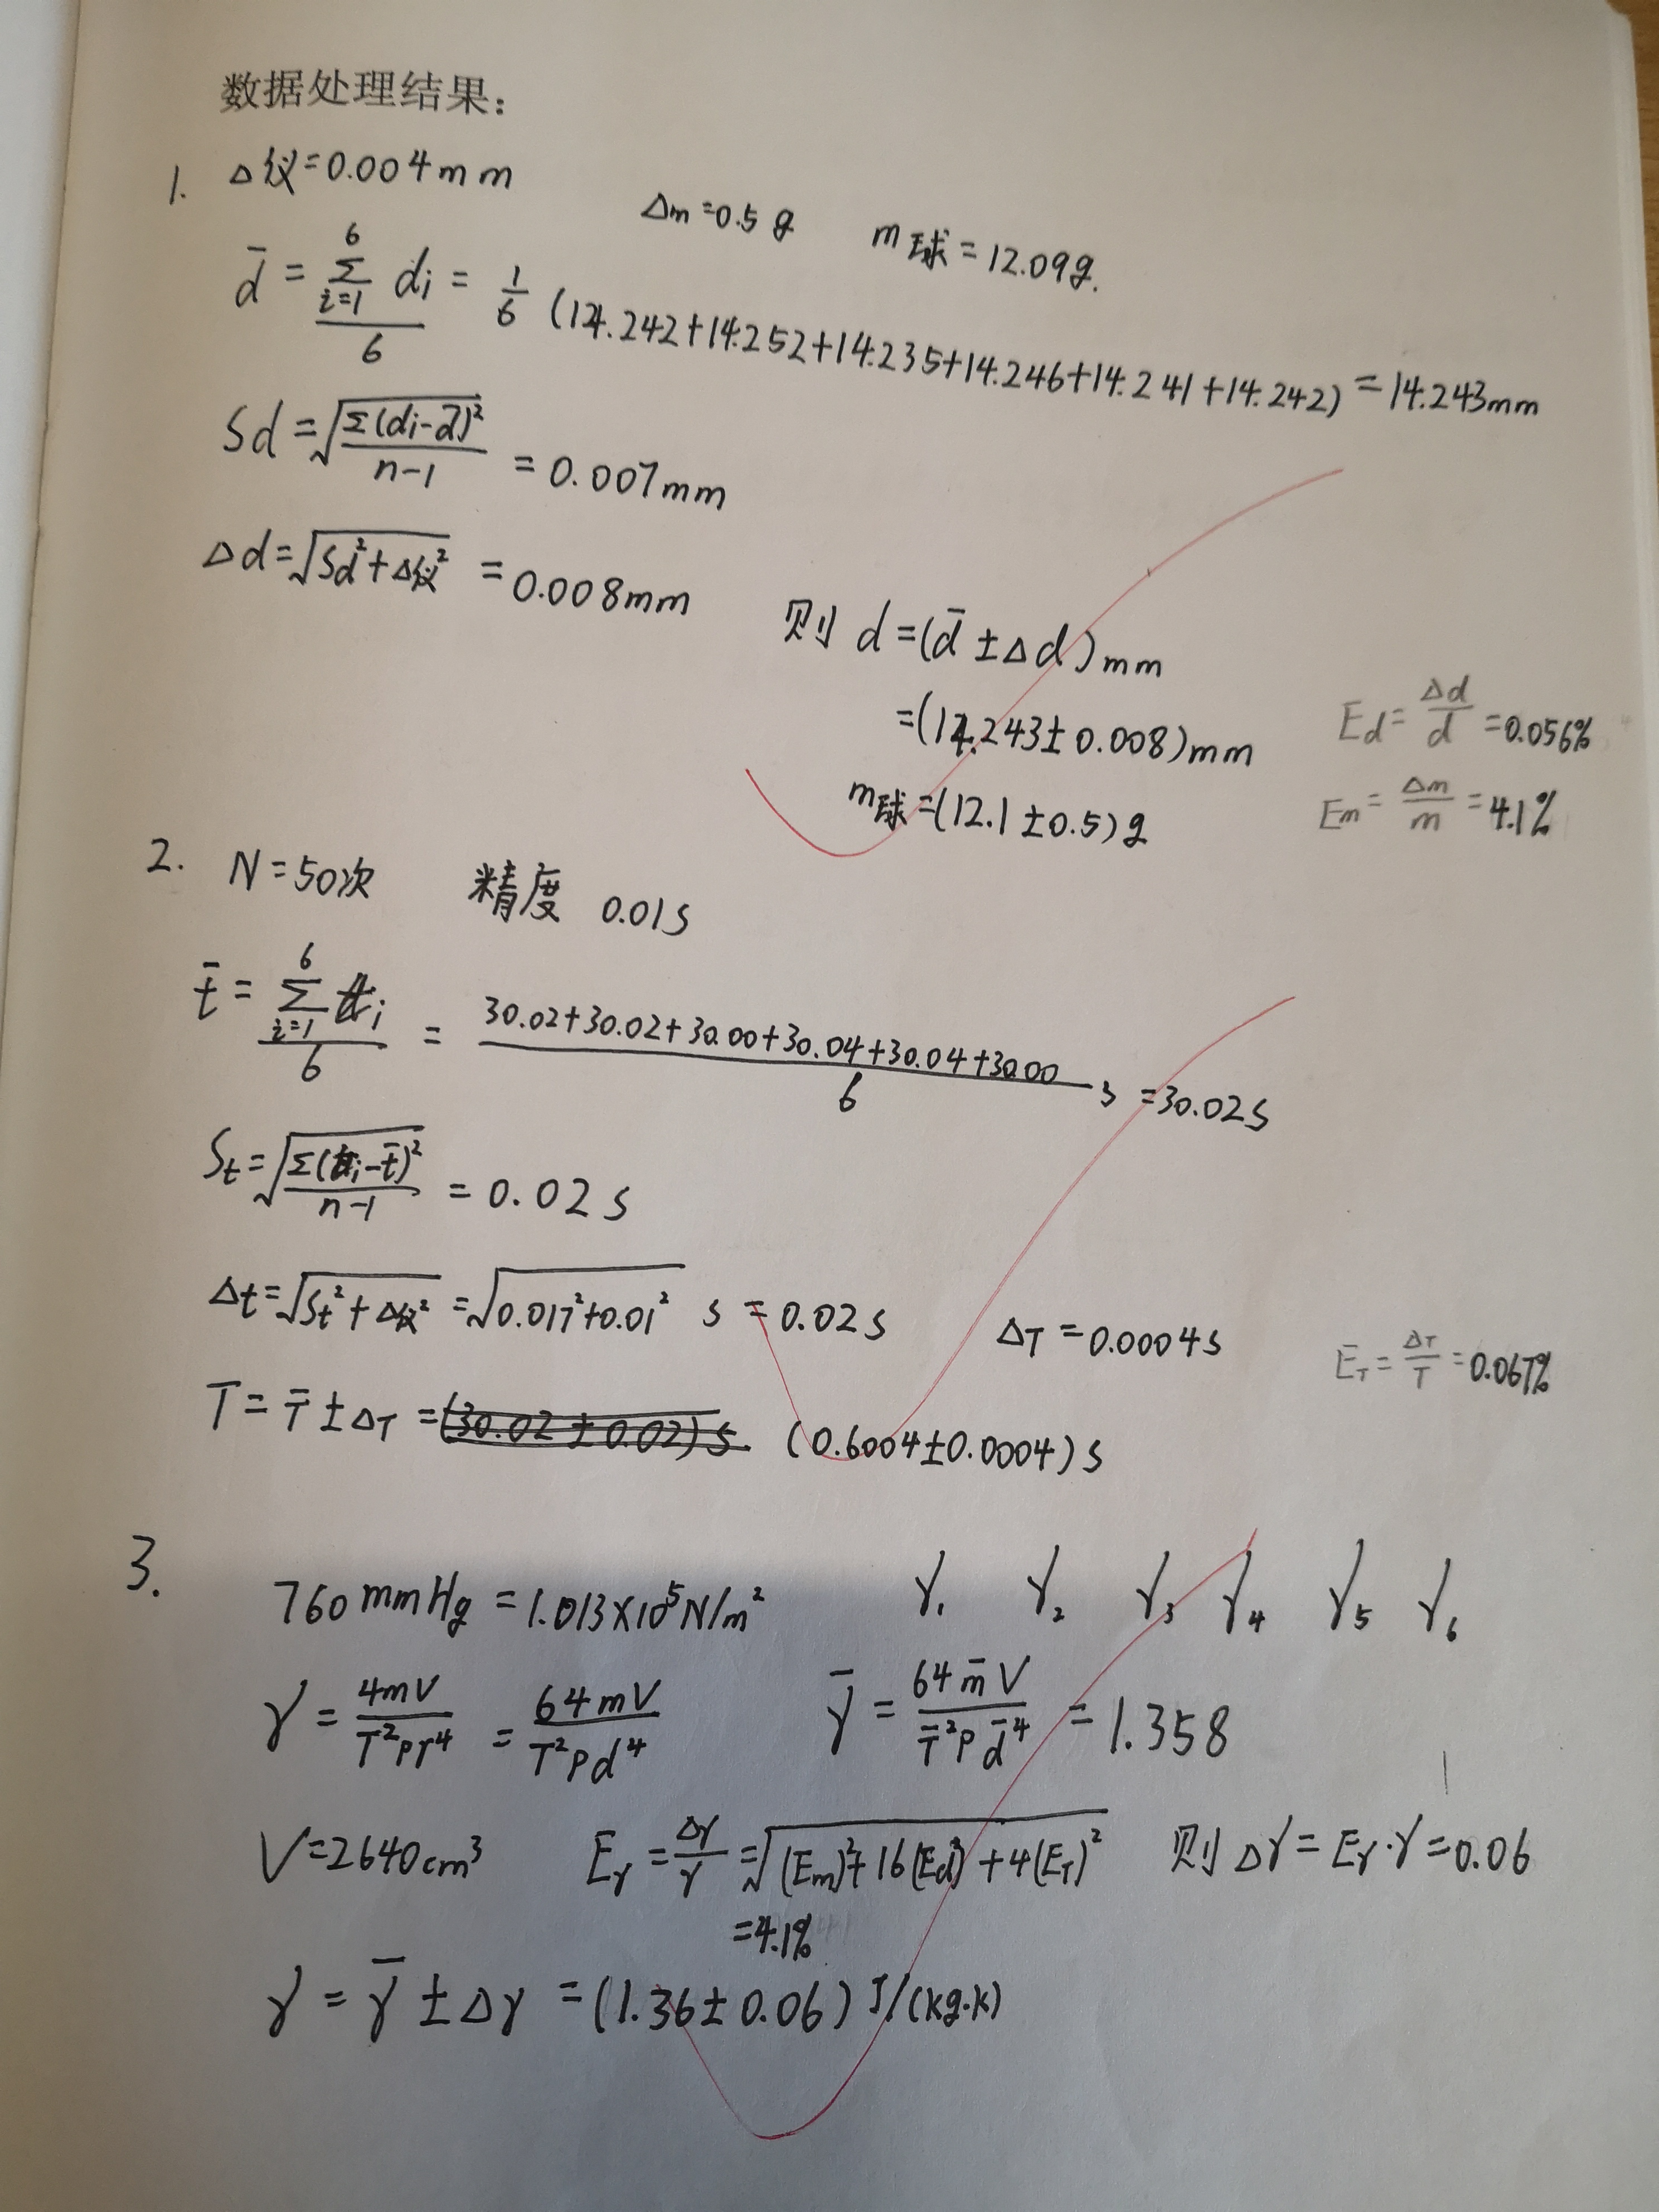 数据处理结果:
1. Δ仪=0.004mm
Δm=0.5g m球=12.09g.
d̄ = Σ(i=1→6) di / 6 = 1/6 (14.242+14.252+14.235+14.246+14.241+14.242) = 14.243mm
Sd = √(Σ(di-d̄)²/(n-1)) = 0.007mm
Δd = √(Sd²+Δ仪²) = 0.008mm
则 d=(d̄±Δd)mm
=(14.243±0.008)mm
Ed = Δd/d = 0.056%
m球=(12.1±0.5)g
Em = Δm/m = 4.1%
2. N=50次 精度 0.01s
t̄ = Σ(i=1→6) ti / 6 = (30.02+30.02+30.00+30.04+30.04+30.00)/6 s =30.02s
St = √(Σ(ti-t̄)²/(n-1)) = 0.02s
Δt = √(St²+Δ仪²) = √(0.017²+0.01²) s = 0.02s ΔT=0.0004s
ET = ΔT/T = 0.067%
T = T̄±ΔT = (30.02±0.02)s (0.6004±0.0004)s
3. 760mmHg = 1.013×10⁵N/m² γ₁ γ₂ γ₃ γ₄ γ₅ γ₆
γ = 4mV/T²Pr⁴ = 64mV/T²Pd⁴ γ̄ = 64m̄V/T̄²Pd̄⁴ = 1.358
V=2640cm³ Eγ = Δγ/γ = √((Em)²+16(Ed)²+4(ET)²) 则Δγ=Eγ·γ=0.06
=4.1%
γ = γ̄±Δγ = (1.36±0.06) J/(kg·k)